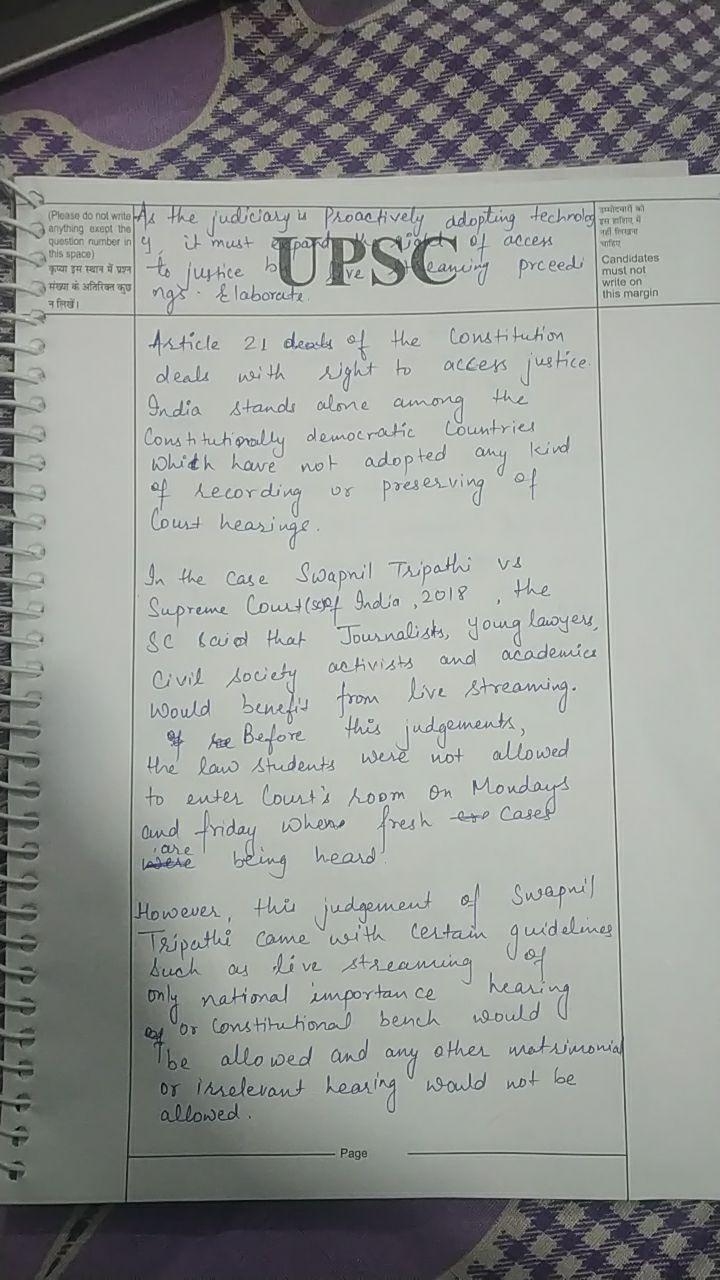 (Please do not write
anything exept the
question number in
this space)
कृप्या इस स्थान में प्रश्न
संख्या के अतिरिक्त कुछ
न लिखें।
As the judiciary is Proactively adopting technolog
y, it must expand the right of access
to justice b live streaming prceedi
ngs. Elaborate.
UPSC
उम्मीदवारों को
इस हाशिए में
नहीं लिखना
चाहिए
Candidates
must not
write on
this margin
Article 21 deals of the Constitution
deals with right to access justice.
India stands alone among the
Constitutionally democratic Countries
Which have not adopted any kind
of recording or preserving of
Court hearings.
In the case Swapnil Tripathi vs
Supreme Court(sc)of India, 2018, the
SC said that Journalists, young lawyers,
Civil society activists and academics
Would benefit from live streaming.
Before this judgements,
the law students were not allowed
to enter Court's room on Mondays
and friday when fresh cases
are
were being heard.
However, this judgement of Swapnil
Tripathi came with certain guidelines
Such as live streaming of
only national importance hearing
or constitutional bench would
be allowed and any other matrimonial
or irrelevant hearing would not be
allowed.
Page